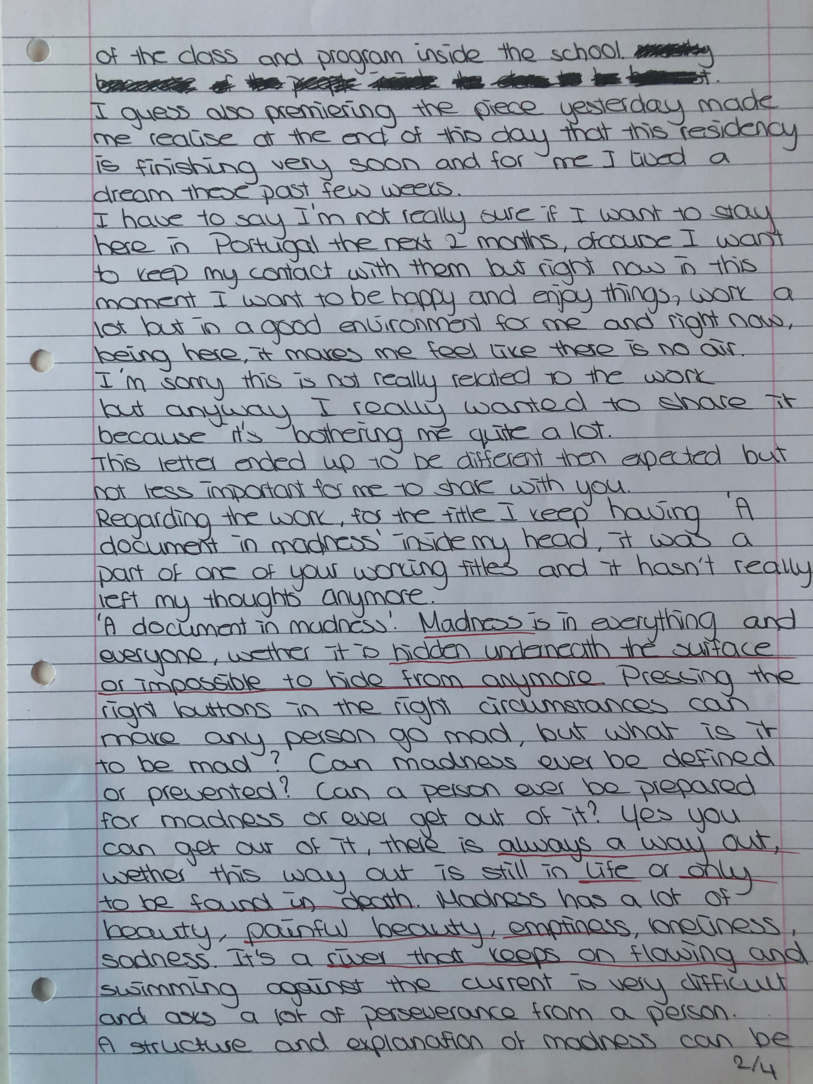 of the class and program inside the school.
I guess also premiering the piece yesterday made
me realise at the end of this day that this residency
is finishing very soon and for me I lived a
dream these past few weeks.
I have to say I'm not really sure if I want to stay
here in Portugal the next 2 months, ofcourse I want
to keep my contact with them but right now in this
moment I want to be happy and enjoy things, work a
lot but in a good environment for me and right now,
being here, it makes me feel like there is no air.
I'm sorry this is not really related to the work
but anyway I really wanted to share it
because it's bothering me quite a lot.
This letter ended up to be different then expected but
not less important for me to share with you.
Regarding the work, for the title I keep having 'A
document in madness' inside my head, it was a
part of one of your working titles and it hasn't really
left my thoughts anymore.
'A document in madness'. Madness is in everything and
everyone, wether it is hidden underneath the surface
or impossible to hide from anymore. Pressing the
right buttons in the right circumstances can
make any person go mad, but what is it
to be mad? Can madness ever be defined
or prevented? Can a person ever be prepared
for madness or ever get out of it? Yes you
can get out of it, there is always a way out,
wether this way out is still in life or only
to be found in death. Madness has a lot of
beauty, painful beauty, emptiness, loneliness,
sadness. It's a river that keeps on flowing and
swimming against the current is very difficult
and asks a lot of perseverance from a person.
A structure and explanation of madness can be
2/4